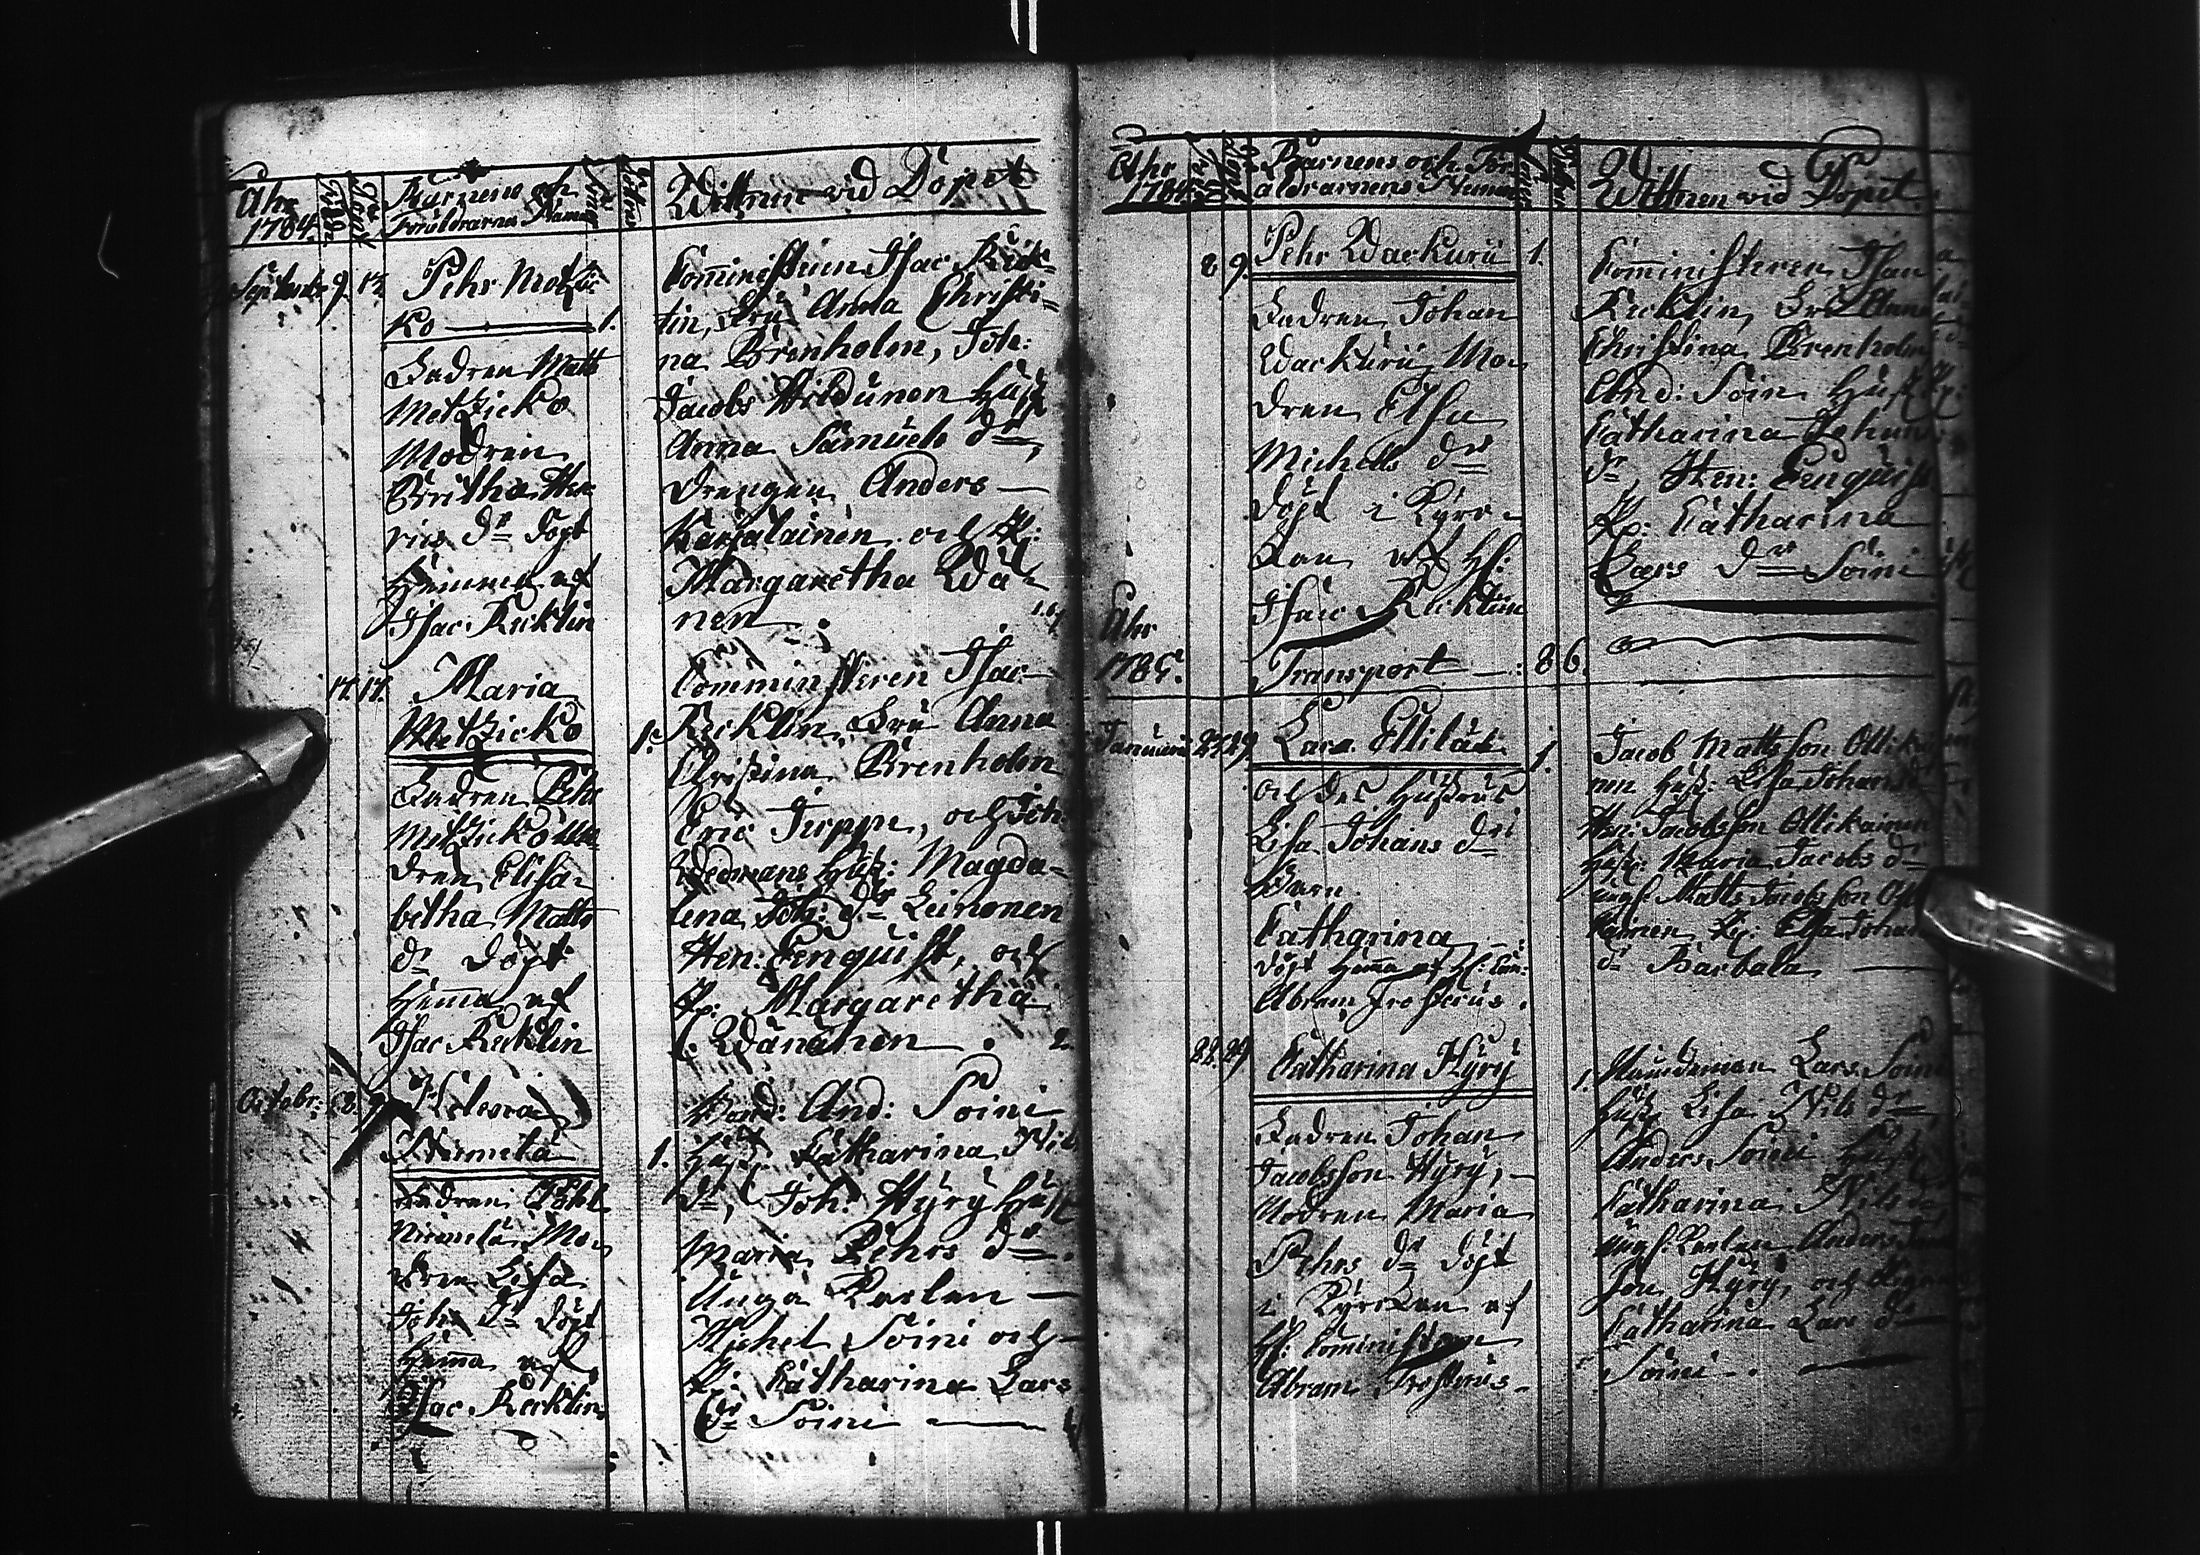 Åhr
1784.
Barnens och
Föräldrarnes Namn
Wittnen vid Döpet
Septembr 9. 12.
Pehr Metzie
ko 1.
Fadren Matts
Metzicko
Modren
Britha Hen
rics dr Döpt
Hemma af
Isac Recklin
Comministeren Isac Reck-
lin, Fru Anna Christi-
na Brenholm, Joh:
Jacobs Hildunen Hust
Anna Samuels dr,
Drengen Anders
Karialainen och Pp:
Margaretha Wä-
nen.
17. 17.
Maria
Metzicko 1.
Fadren Pehr
Metzicko Mo
dren Elisa-
betha Matts
dr Döpt
Hemma af
Isac Recklin
Comministeren Isac
Recklin, Fru Anna
Christina Brenholm
Eric Jeppe, och Joh:
Hust: Magda-
lena Joh: dr Leinonen
Hen: Fenquist, och
Pp: Margaretha
Wänänen.
Octobr: 8. 9.
Eleora
Niemelä 1.
Fadren Pehr
Niemelä, Mo-
dren Lisa
Joh: dr Döpt
Hemma af
Isac Recklin
And: Soini
Hust Catharina Nils
dr, Joh: Hyry Hust
Maria Pehrs dr.
Unga Karlen
Michel Soini och
Pp: Catharina Lars
dr Soini
Åhr
1784
Barnens och För
äldrarnens Namn
Wittnen vid Döpet
8 9.
Pehr Wackuri 1.
Fadren Johan
Wackuri, Mo-
dren Elsa
Michells dr
Döpt i Kyrc-
kan af H:
Isaac Recklin
Comministeren Isac
Recklin, Fru Anna
Christina Brenholm
And: Soini Hust:
Catharina Johans
dr, Hen: Fenquist
Pp: Catharina
Lars dr Soini
Åhr
1785.
Transport 8 6.
Januarii 22. 29
Lars Ettilät 1.
och des Hustrus
Lisa Johans dr
Barn
Catharina
döpt Hemma af H: Com:
Abram Frosterus.
Jacob Mattsson Ollikai
nen Hust: Lisa Johans dr
Hen: Jacobsson Ollikainen
Hust: Maria Jacobs dr
ungk: Matts Jacobsson Olli
kainen Pp: Elsa Johans
dr Barbara
22. 29
Catharina Hyry 1.
Fadren Johan
Jacobsson Hyry,
Modren Maria
Pehrs dr döpt
i Kyrckan af
H: Comministeren
Abram Frosterus.
Nämdeman Lars Soini
Hust. Lisa Nils dr
Anders Soini Hust:
Catharina Nils dr
ungk: Karlen Anders
son Hyry, och
Catharina Lars dr
Soini.